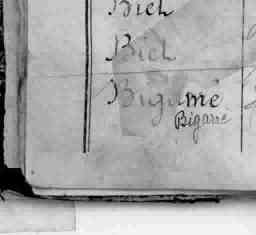 Biel
Biel
Bigarré
Bigarré